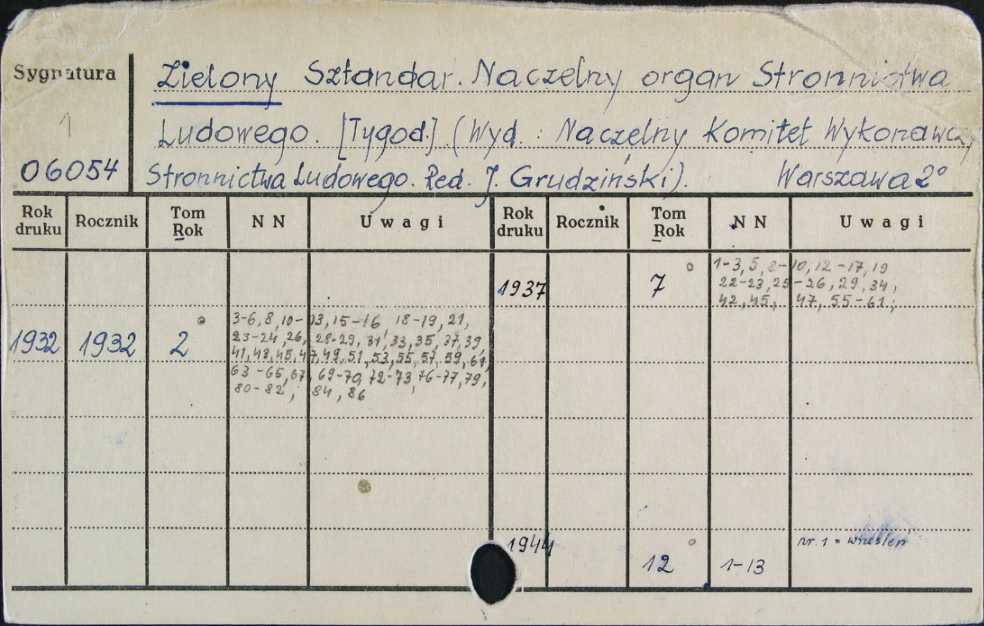 Sygnatura
1
06054
Zielony Sztandar. Naczelny organ Stronnictwa
Ludowego. [Tygod.]. (Wyd.: Naczelny Komitet Wykonawczy
Stronnictwa Ludowego. Red. J. Grudziński). Warszawa 2°
Rok druku Rocznik Tom Rok NN Uwagi Rok druku Rocznik Tom Rok NN Uwagi
1932 1932 2
3-6, 8, 10-13, 15-16 18-19, 21,
23-24, 26, 28-29, 31, 33, 35, 37, 39,
41, 43, 45, 47, 49, 51, 53, 55, 57, 59, 61,
63-65, 67, 69-70, 72-73, 76-77, 79,
80-82, 84, 86
1937 7
1-3, 5, 8-10, 12-17, 19
22-23, 25-26, 29, 34,
42, 45, 47, 55-61;
1944 12 1-13
nr. 1 =